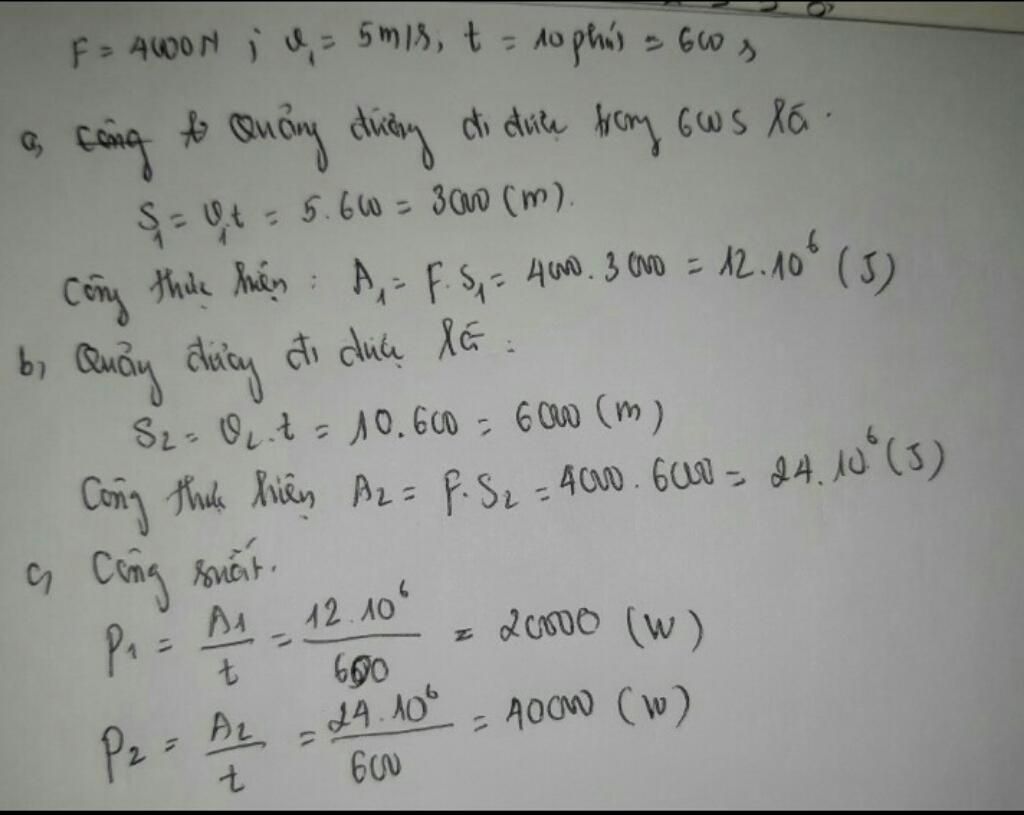 F = 4000N ; v₁ = 5m/s, t = 10 phút = 600 s
a, Công Quảng đường đi được trong 600s là.
S₁ = v₁.t = 5.600 = 3000 (m).
Công thực hiện : A₁ = F.S₁ = 4000.3000 = 12.10⁶ (J)
b, Quảng đường đi được là :
S₂ = v₂.t = 10.600 = 6000 (m)
Công thực hiện A₂ = F.S₂ = 4000.6000 = 24.10⁶ (J)
c, Công suất.
P₁ = A₁/t = 12.10⁶/600 = 20000 (W)
P₂ = A₂/t = 24.10⁶/600 = 40000 (W)